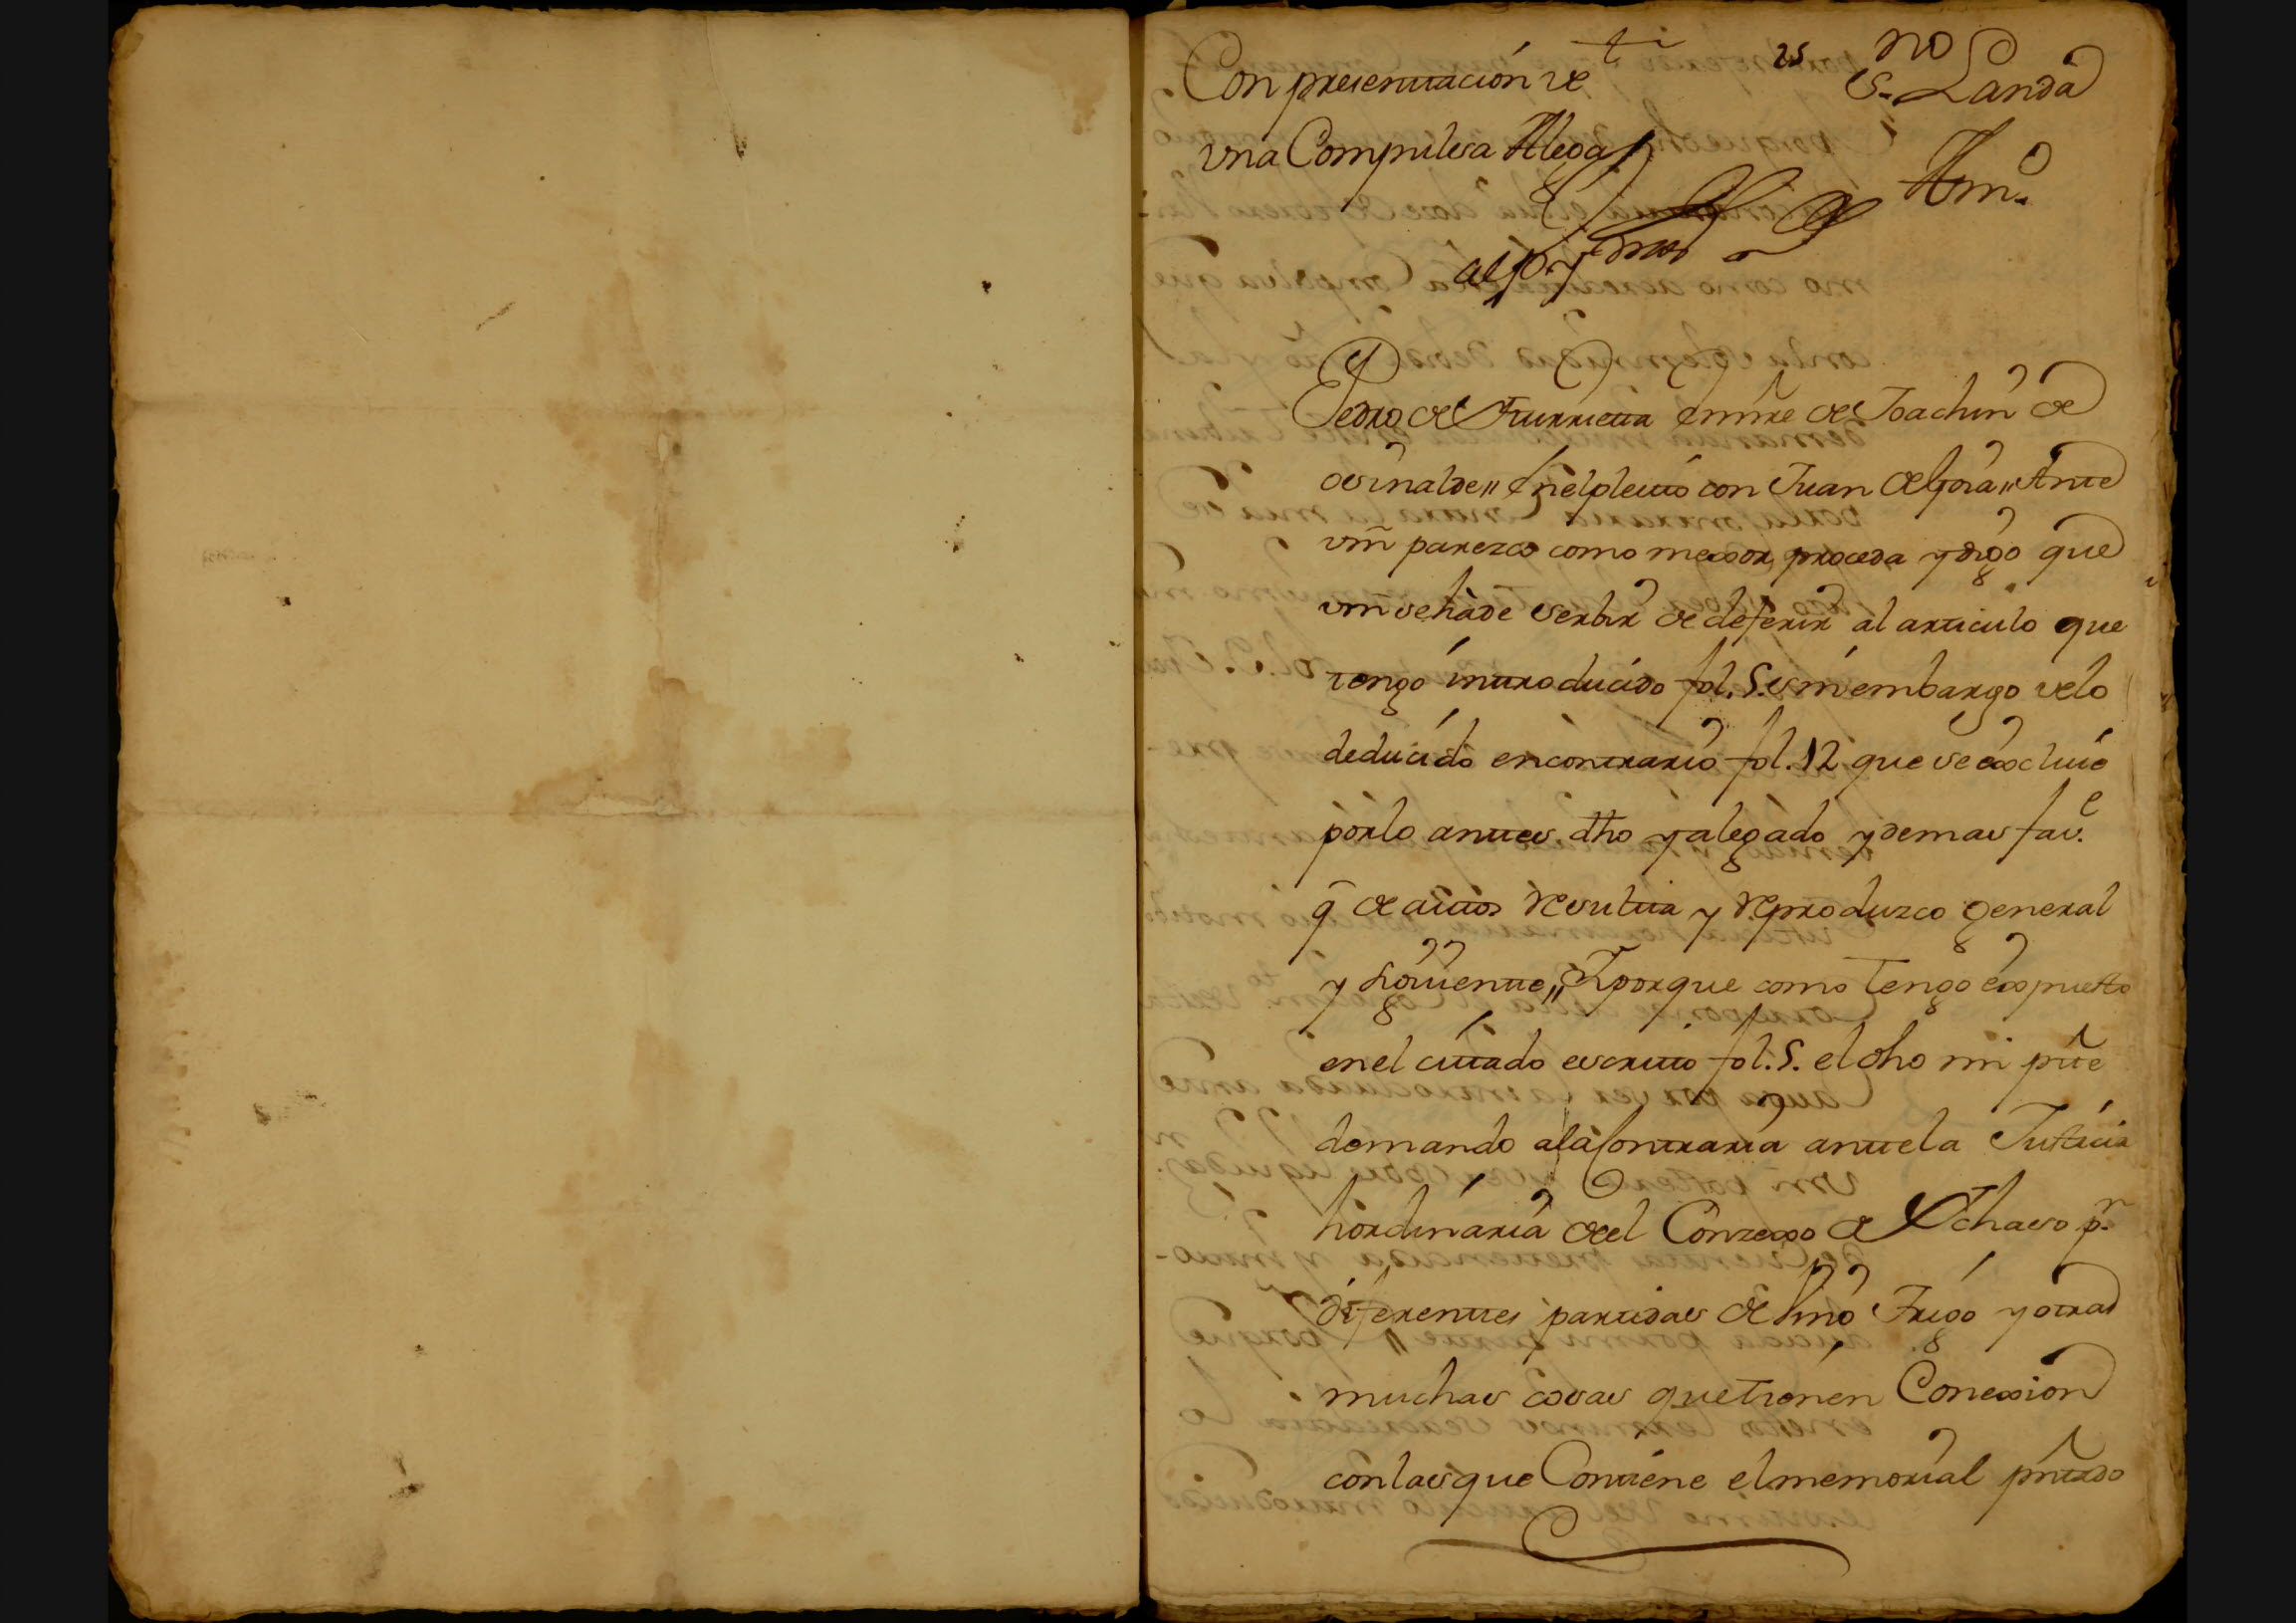 25
Con presentacion de
S.no Landa
vna Compulsa Alega
Pedro de Yturrieta en nre de Joachin de
osinalde,, En el pleito con Juan de Goia,, Ante
vm parezco como mexor proceda y digo que
vm se hà de serbir de deferir al articulo que
tengo introducido fol. 5. sin embargo de lo
deducido en contrario fol. 12 que se excluie
por lo antes dho y alegado y demas fav.e
q̄ de autos resulta y reproduzco general
y siguiente,, Y porque como tengo expuesto
en el citado escrito fol. 5. el dho mi pte
demando a la Contraria ante la Justicia
hordinaria del Conzexo de Ochavo p.r
diferentes partidas de lino Trigo y otras
muchas cosas que tienen Conexion
con las que Contiene el memorial pntado